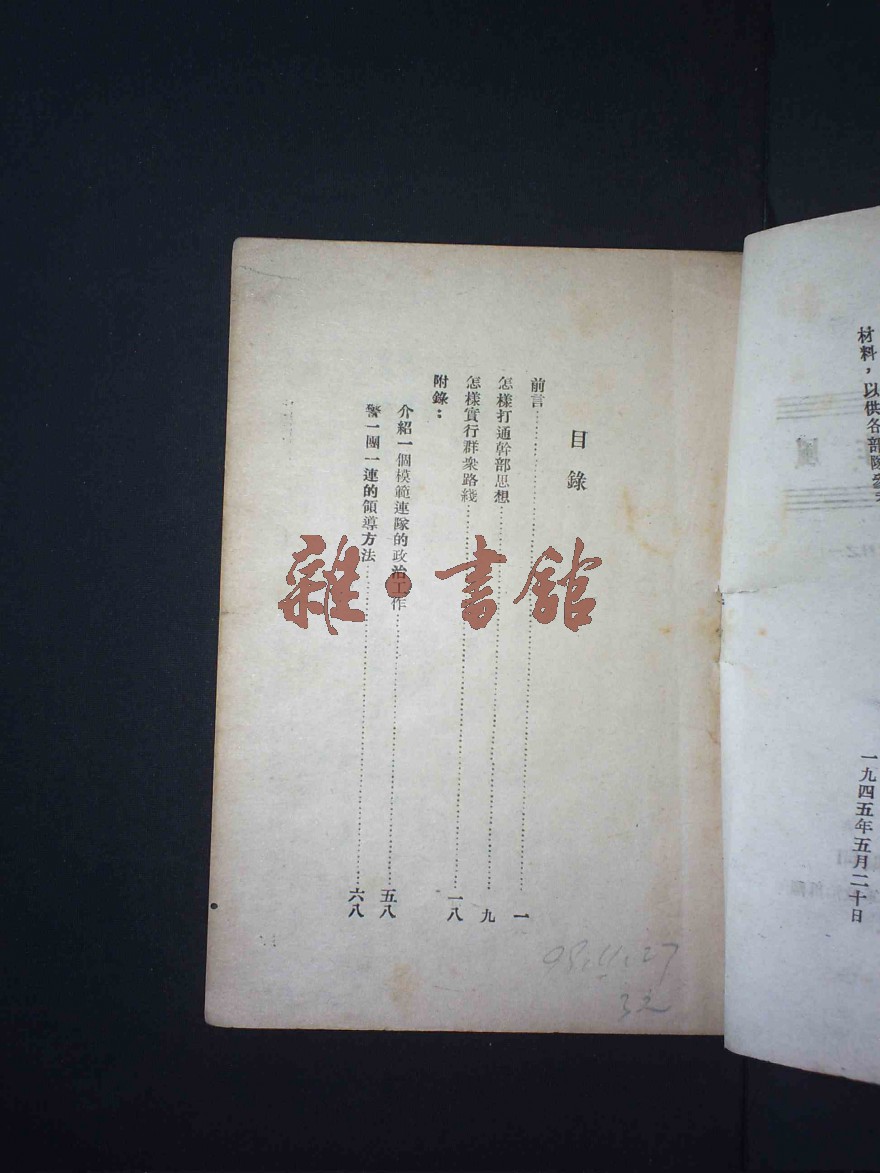 材料，以供各部隊參考
一九四五年五月二十日
目錄
前言……一
怎樣打通幹部思想……九
怎樣實行群衆路綫……一八
附錄：
介紹一個模範連隊的政治工作……五八
警一團一連的領導方法……六八
雜·書館
09.11.27
3元